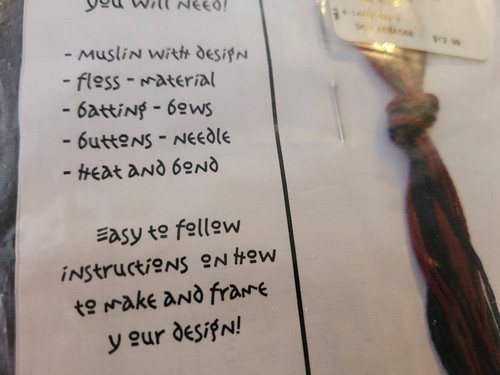 you will need!
- Muslin with design
- floss - material
- batting - bows
- buttons - needle
- Heat and bond
Easy to follow
instructions on how
to make and frame
your design!
$12.98